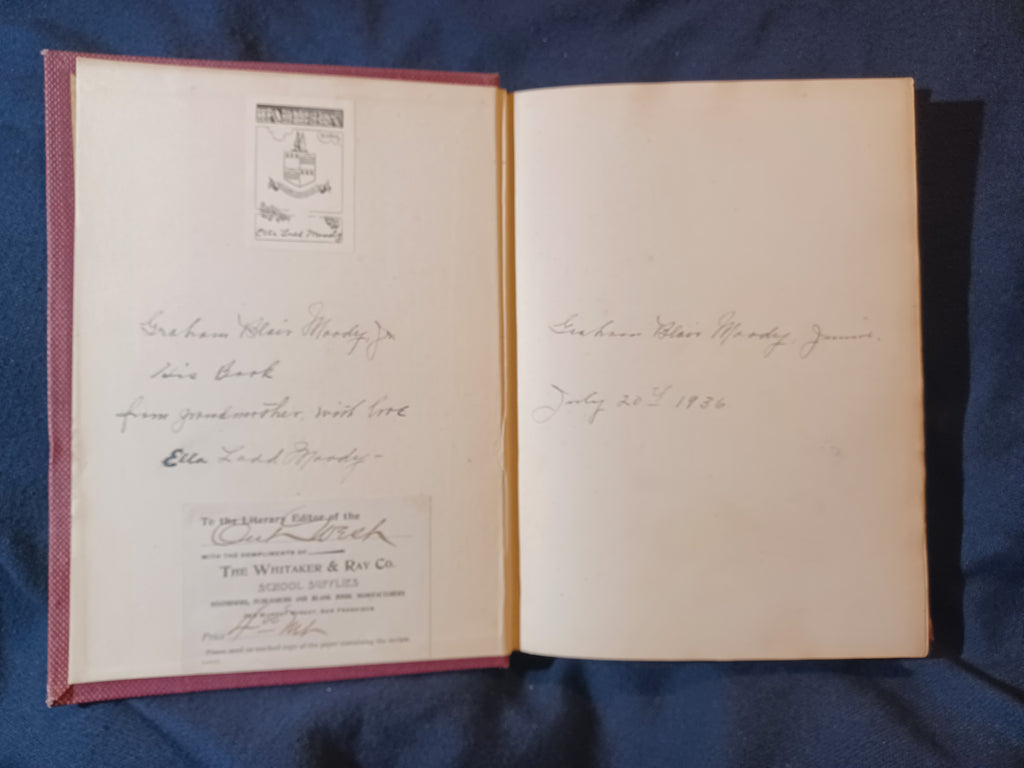 Ella Ladd Moody
Graham Blair Moody, Jr
His Book
from grandmother, with love
Ella Ladd Moody -
To the Literary Editor of the
Out West
WITH THE COMPLIMENTS OF
THE WHITAKER & RAY CO.
SCHOOL SUPPLIES
STATIONERS, PUBLISHERS AND BLANK BOOK MANUFACTURERS
STREET, SAN FRANCISCO
Price
Please send us marked copy of the paper containing the review.
Graham Blair Moody, Junior.
July 20th 1936